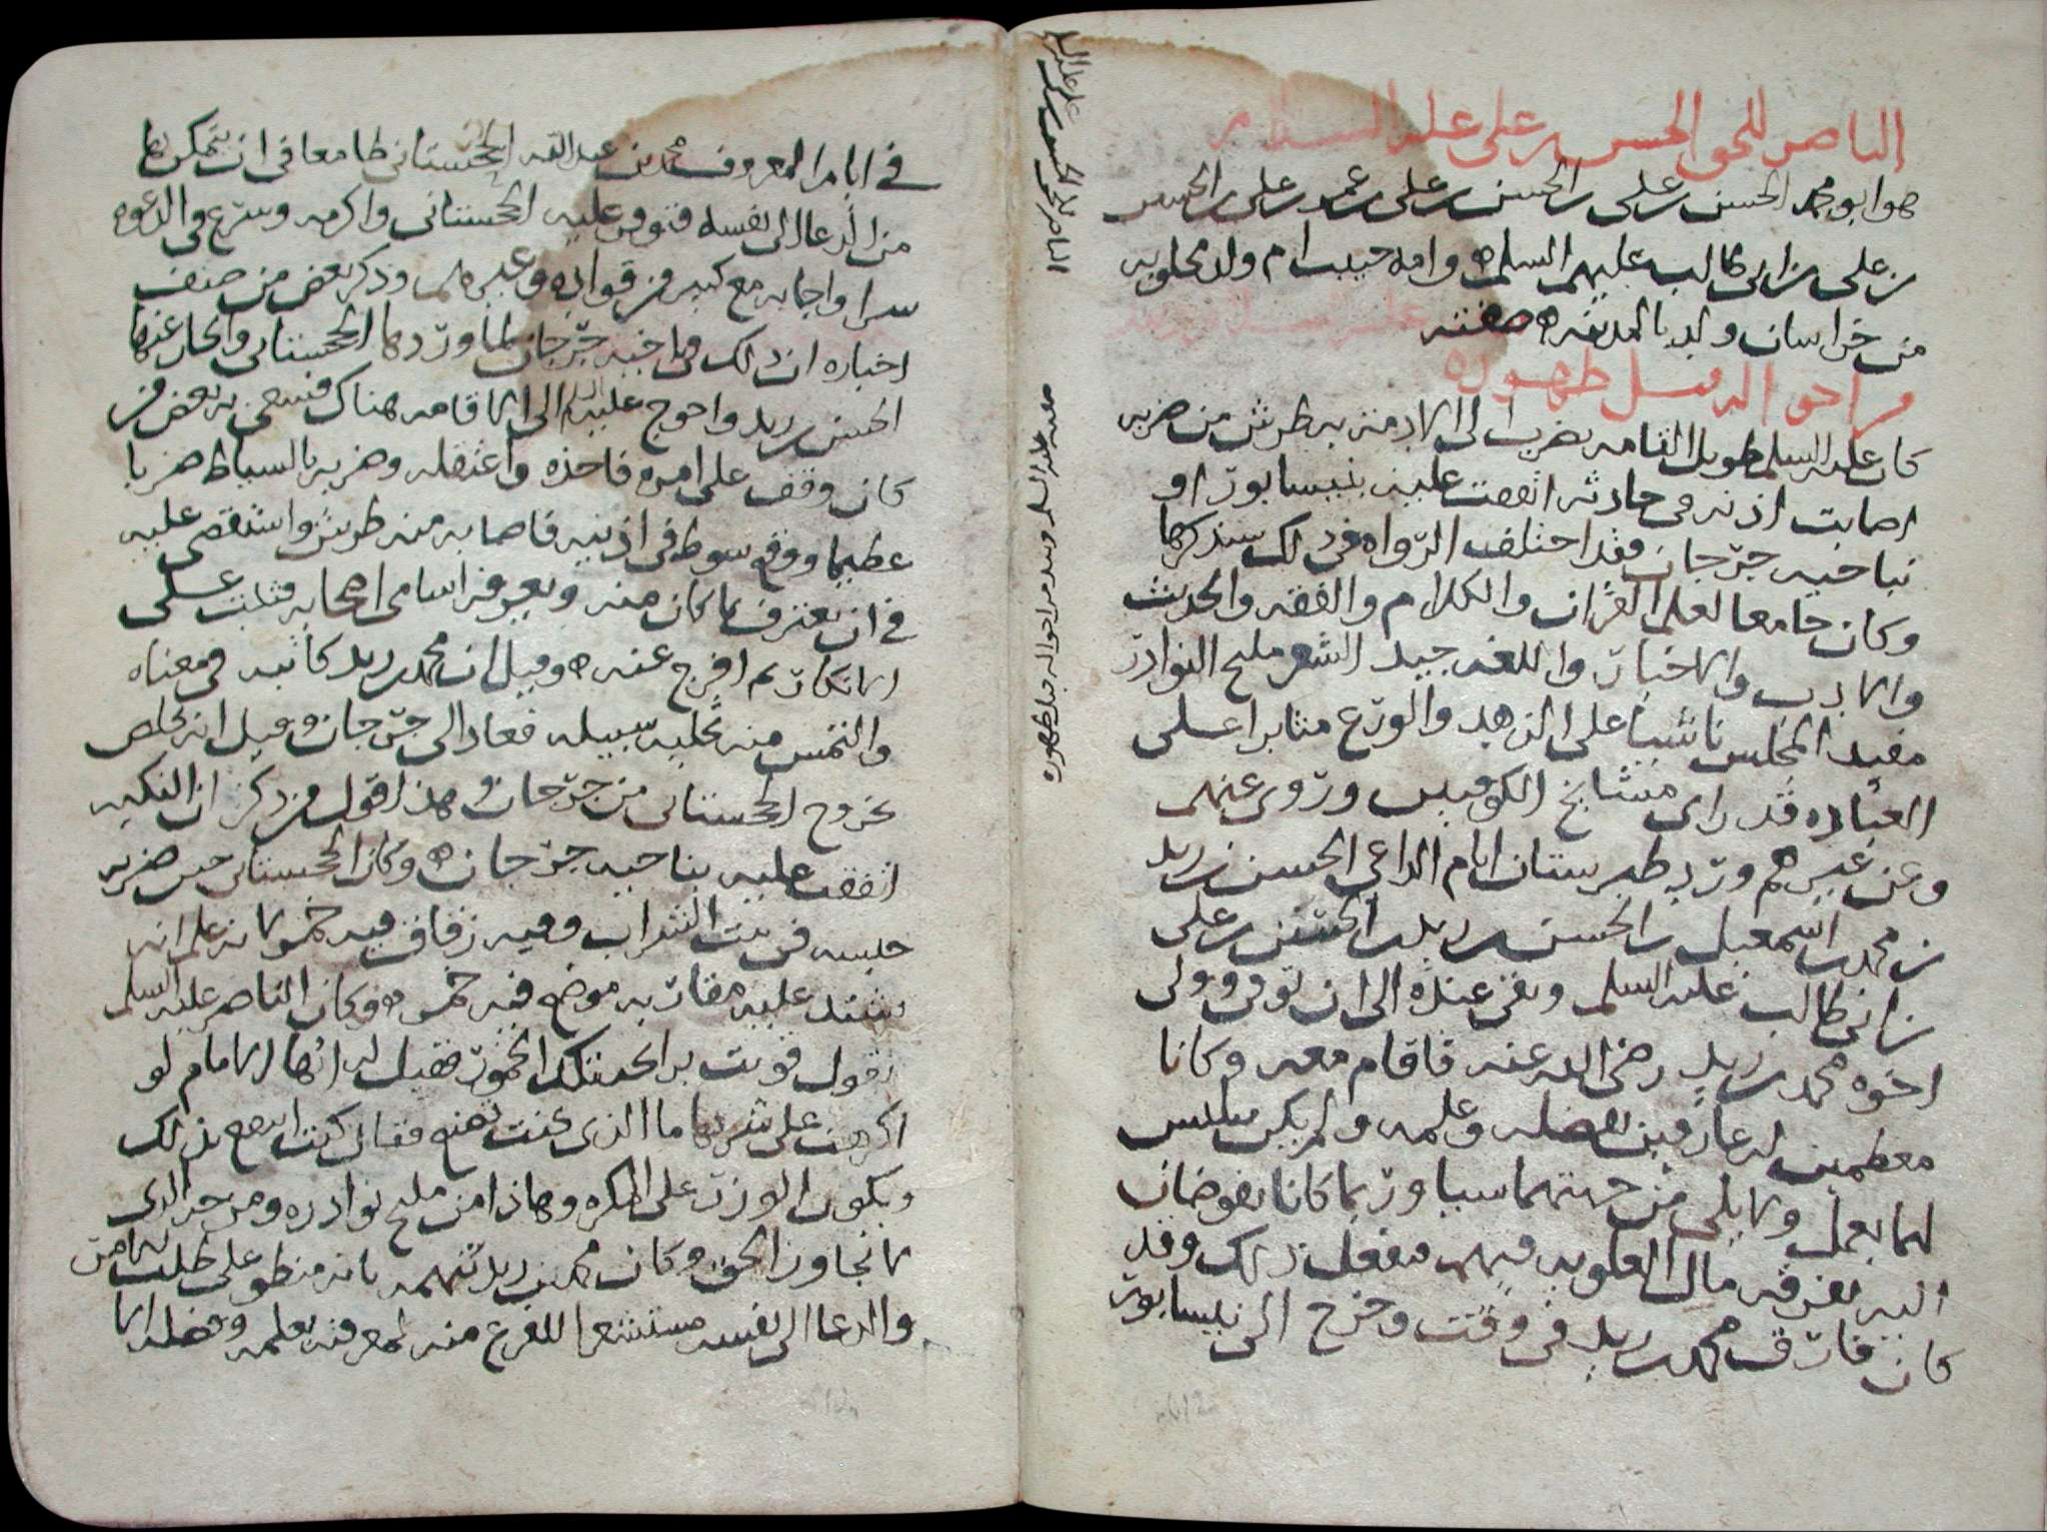 الناصر للحق الحسن بن علي عليه السلام
هو ابو محمد الحسن بن علي بن الحسن بن علي بن عمر بن علي بن الحسين
بن علي بن ابي طالب عليهم السلم وامه حبيب ام ولد مجلوبه
من خراسان ولد بالمدينه صفته
واحواله قبل ظهوره
كان عليه السلم طويل القامه يضرب الى الادمه به طرش من ضربه
اصابت اذنه في حادثه اتفقت عليه بنيسابور او
بناحيه جرجان فقد اختلفت الرواه في ذلك سنذكرها
وكان جامعا لعلم القران والكلام والفقه والحديث
والادب والاخبار واللغه جيد الشعر مليح النوادر
مفيد المجلس ناشيا على الزهد والورع مثابرا على
العباده قد راى مشايخ الكوفيين وروى عنهم
وعن غيرهم ورد طبرستان ايام الداعي الحسن بن زيد
بن محمد بن اسمعيل بن الحسن بن زيد بن الحسن بن علي
بن ابي طالب عليه السلم وبقي عنده الى ان توفى وولى
اخوه محمد بن زيد رضي الله عنه فاقام معه وكانا
معظمين له عارفين بفضله وعلمه ولم يكن يتلبس
لهما بعمل ولا يلي من جهتهما شيا وربما كانا يفوضان
اليه تفرقه مال العلويه فيهم فيفعل ذلك وقد
كان فارق محمد بن زيد في وقت وخرج الى نيسابور
الناصر للحق الحسن بن علي عليه السلم
صفته عليه السلم ونبذ من احواله قبل ظهوره
في ايام المعروف محمد بن عبدالله الخجستاني طامعا في ان يتمكن بها
من الدعا الى نفسه فتوفر عليه الخجستاني واكرمه وشرع في الدعوه
سرا واجابه مع كثير من قواده وغيرهم وذكر بعض من صنف
اخباره ان ذلك في ناحيه جرجان لما وردها الخجستاني وانحاز عنها
الحسن بن زيد واحوج عليه السلم الى الاقامه هناك فسعى به بعض من
كان وقف على امره فاخذه واعتقله وضربه بالسياط ضربا
عظيما ووقع سوط في اذنيه فاصابه منه طرش واستقصى عليه
في ان يعترف بما كان منه ويعرفه اسامي اصحابه فثبت على
الانكار ثم افرج عنه وقيل ان محمد بن زيد كاتبه في معناه
والتمس منه تخليه سبيله فعاد الى جرجان وقيل انه تخلص
بخروج الخجستاني من جرجان وهذا قول من ذكر ان النكبه
اتفقت عليه بناحيه جرجان وكان الخجستاني حين ضربه
حبسه في بيت الشراب وفيه زقاق فيه خمر لانه علم انه
يشتد عليه مقاربه موضع فيه خمر وكان الناصر عليه السلم
يقول قويت برائحه تلك الخمور فقيل له ايها الامام لو
اكرهت على شربها ما الذي كنت تصنع فقال كنت انتفع بذلك
ويكون الوزر على المكره وهاذا من مليح نوادره ومن حد الذي
لا تجاوز الحق وكان محمد بن زيد يتهمه بانه منطو على طلب الامر
والدعا الى نفسه مستشعرا للفزع منه لمعرفته بعلمه وفضله الا